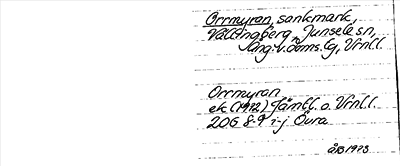 Orrmyran, sankmark,
Vallingberg, Junsele sn,
Ång.v.doms.lg, Vrnll.
Orrmyran
ek (1972) Jämtl. o. Vrnll.
206 8-9 i-j Övra
åB 1973